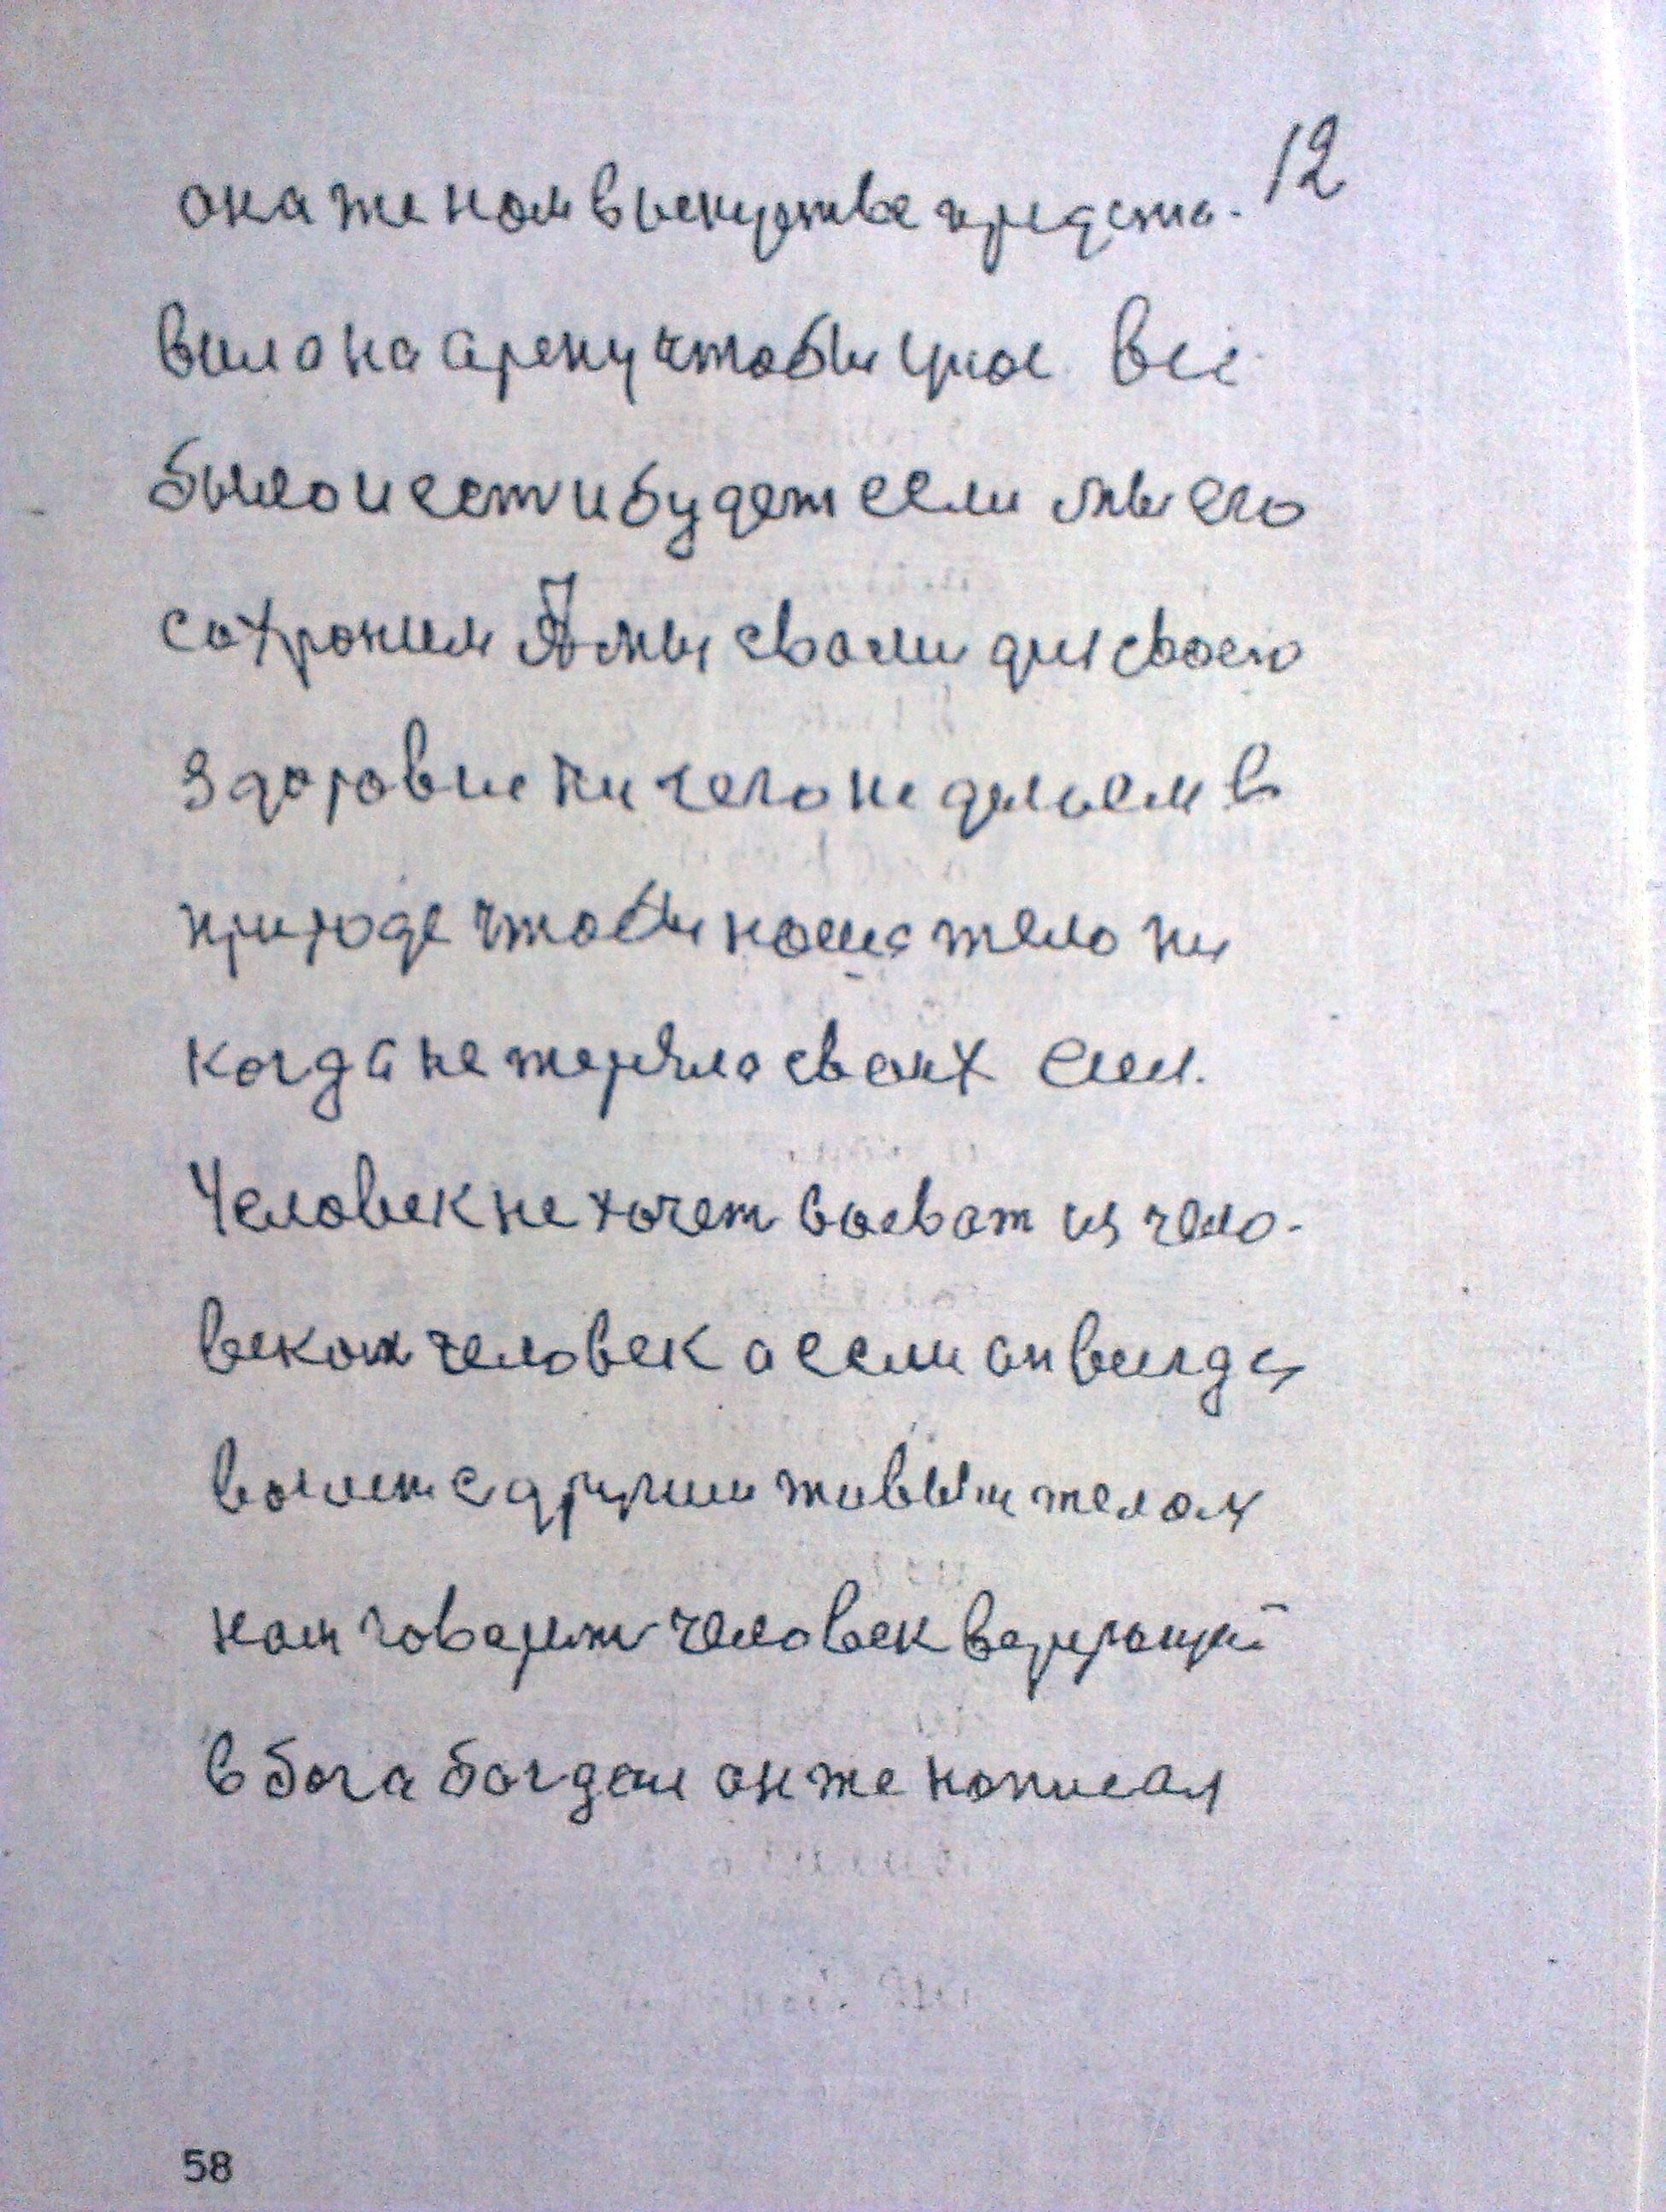 12
она же нам в искуства предста-
вила на арену чтобы 
было и ест и будет если мы его
сохраним А мы свами для своего
здоровие ни чего не делаем в
природе чтобы наше тело ни
когда не теряло своих сил.
Человек не хочет воеват из чело-
веком человек а если он всегда
воюет с другим живым телом
нам говорит человек верующий
в бога бог дал он же написал
58